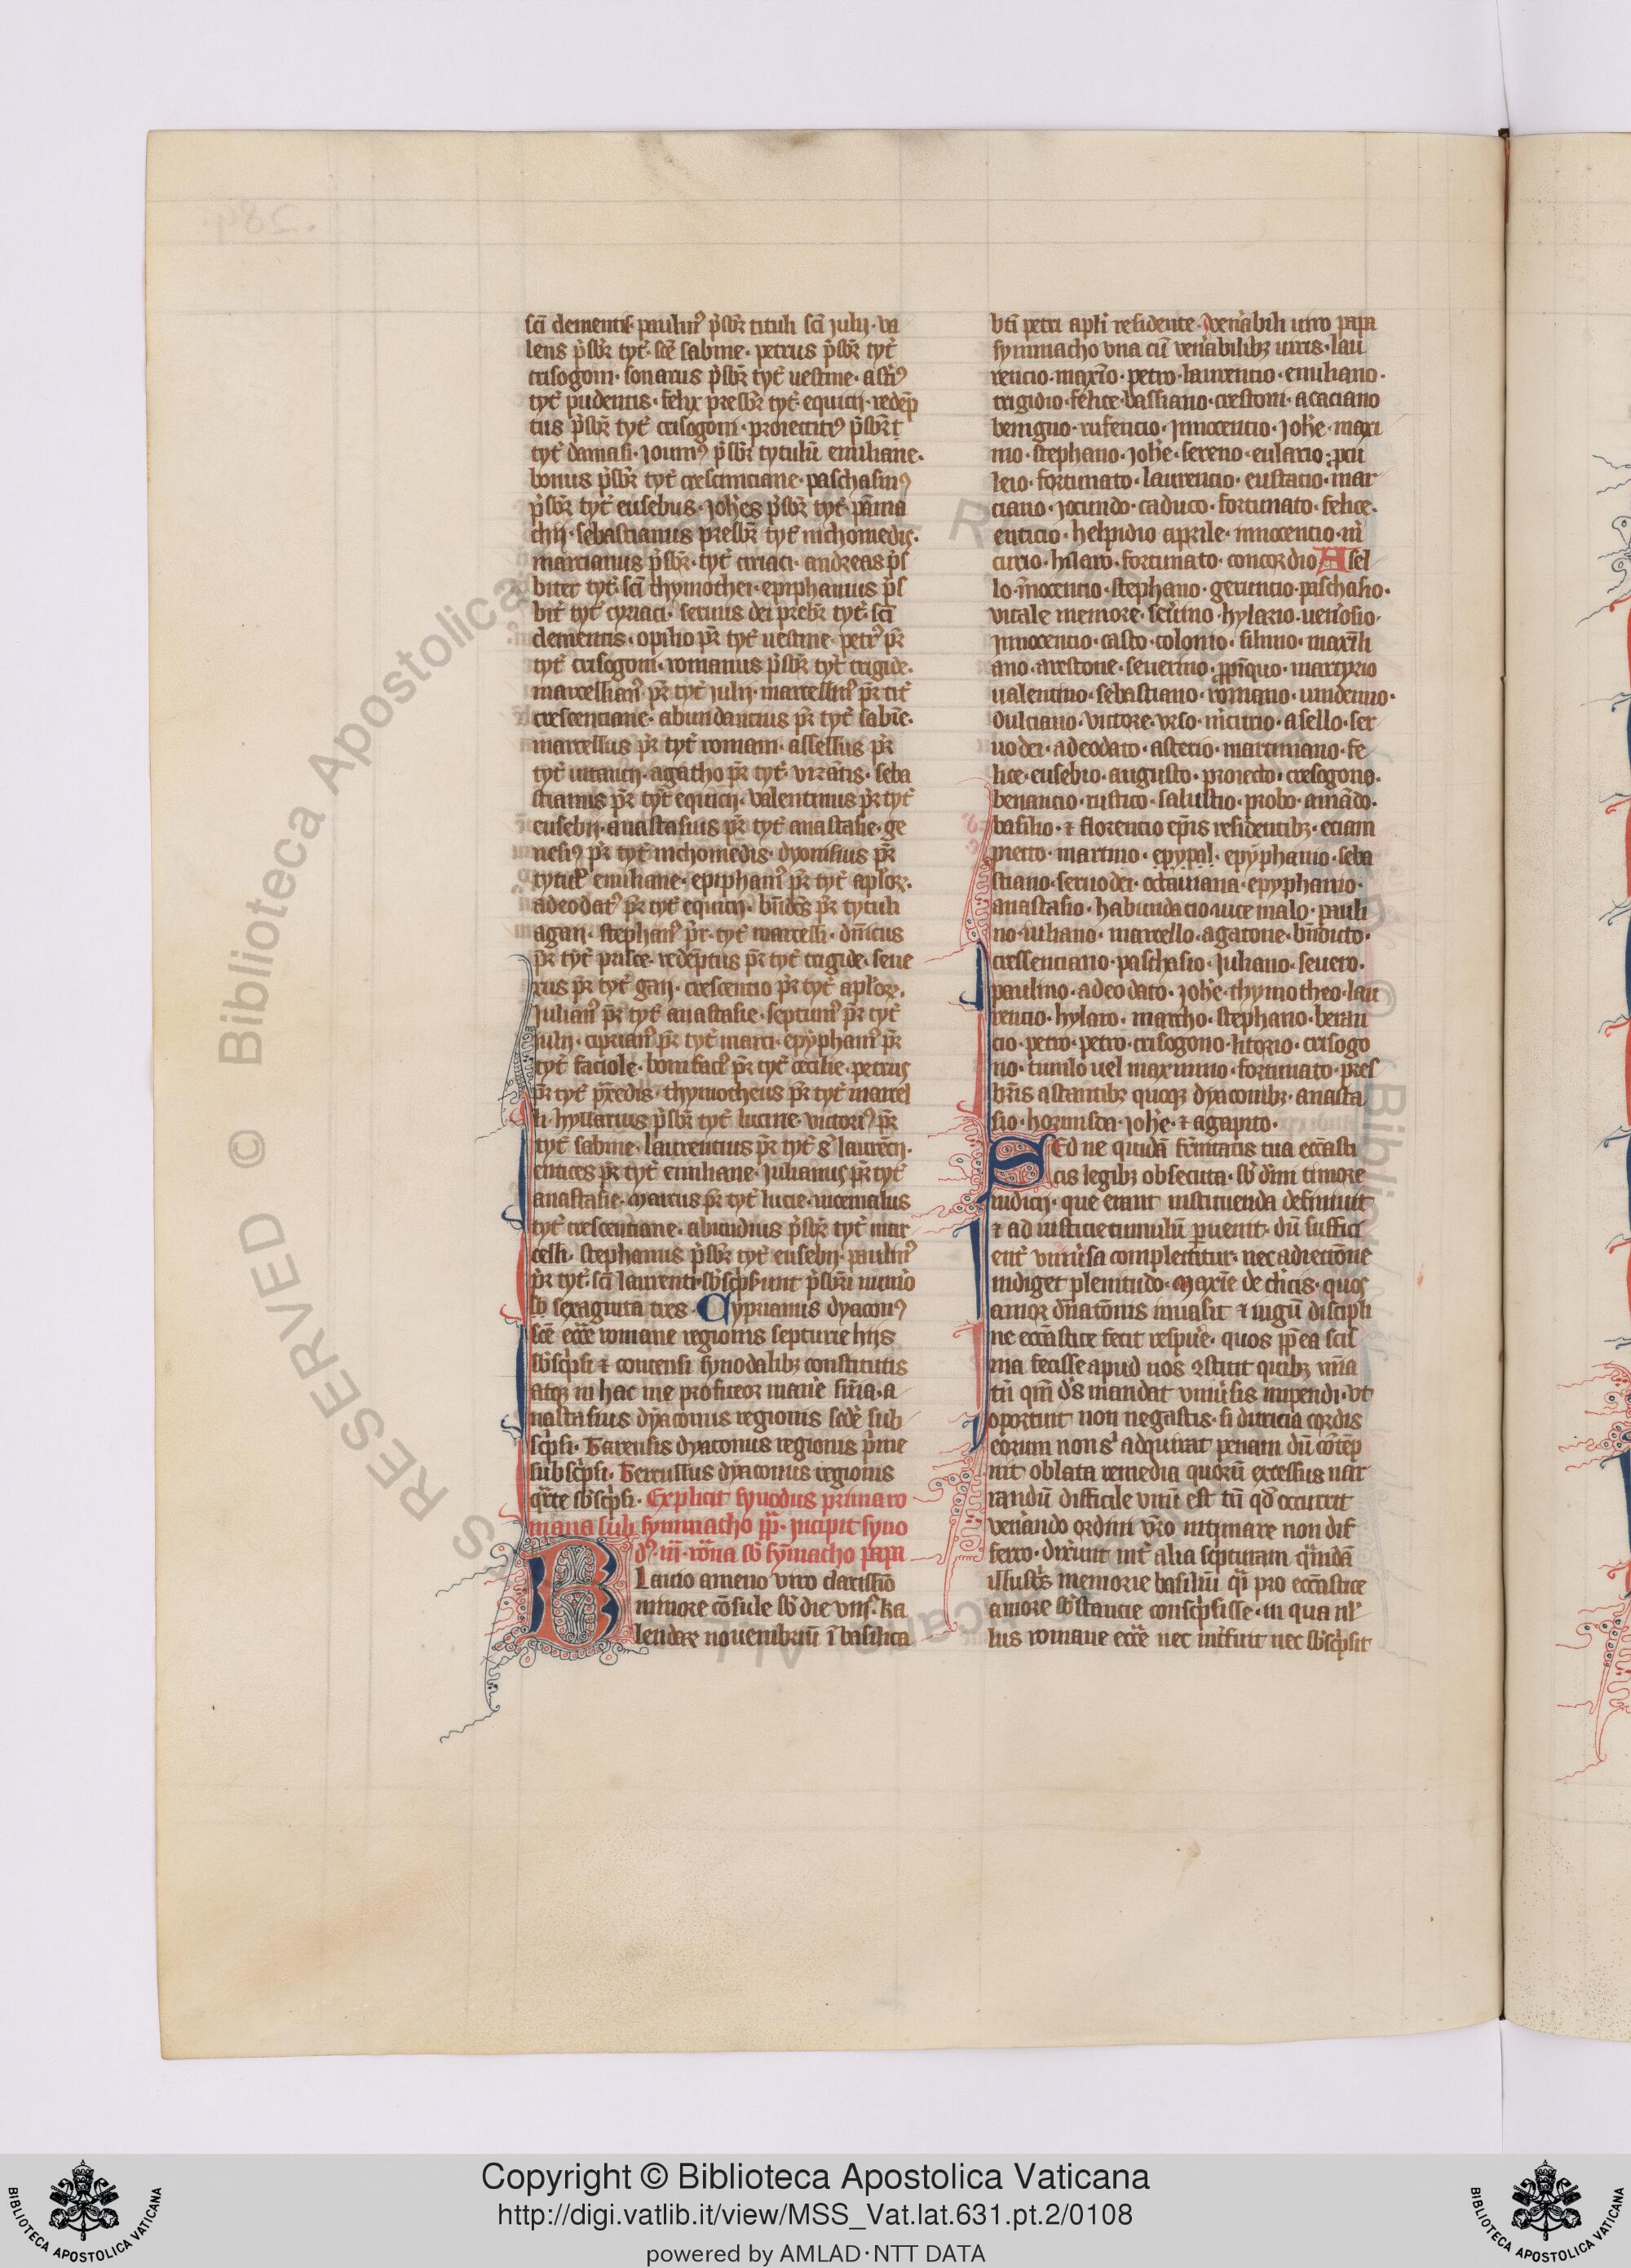 sc̄i clementis· paulin⁹ p̄sbr̄ tituli sc̄i julij· va
lens p̄sbr̄ tyt̄· sc̄e sabine· petrus p̄sbr̄ tyt̄
crisogoni· sonarus p̄sbr̄ tyt̄ uestine· asti⁹
tyt̄ pudentis· felix presbr̄ tyt̄ equicij· redēp
tus p̄sbr̄ tyt̄ crisogoni· proiectici⁹ p̄sbr̄ t̄
tyt̄ damasi· jouin⁹ p̄sbr̄ tytulū emiliane·
bonus p̄sbr̄ tyt̄ crescinciane· paschasin⁹
p̄sbr̄ tyt̄ eusebus· joh̄es p̄sbr̄ tyt̄ pāma
chij· sebastianus presbr̄ tyt̄ nichomedis·
marcianus p̄sbr̄· tyt̄ ciriaci· andreas p̄s
biter tyt̄ sc̄i thymothei· epiphanius p̄s
bit̄ tyt̄ cyriaci· seruus dei prebr̄ tyt̄ sc̄i
clementis· opilio pr̄ tyt̄ uestine· petr⁹ pr̄
tyt̄ crisogoni· romanus p̄sbr̄ tyt̄ tigide·
marcellian⁹ pr̄ tyt̄ julij· marcellin⁹ pr̄ tit̄
crescenciane· abundancius pr̄ tyt̄ sabīe·
marcellus pr̄ tyt̄ romani· assellus pr̄
tyt̄ uitancij· agatho pr̄ tyt̄· vizātis· seba
stianus pr̄ tyt̄ equicij· valentinus pr̄ tyt̄
eusebij· anastasius pr̄ tyt̄ anastasie· ge
nesi⁹ pr̄ tyt̄ nichomedis· dyonisius pr̄
tytul̄ emiliane· epiphani⁹ pr̄ tyt̄ aplor̄·
adeodat⁹ pr̄ tyt̄ equicij· bn̄dc̄s pr̄ tytuli
agari· stephan⁹ pr̄· tyt̄ marcelli· dn̄icus
pr̄ tyt̄ prisce· redēptus pr̄ tyt̄ tigide· seue
rus pr̄ tyt̄ gaij· crescencio pr̄ tyt̄ aplor̄·
julian⁹ pr̄ tyt̄ anastasie· septimi⁹ pr̄ tyt̄
julij· ciprian⁹ pr̄ tyt̄ marci· epyphani⁹ pr̄
tyt̄ faciole· bonifaci⁹ pr̄ tyt̄ cecilie· petrus
pr̄ tyt̄ p̄xedis· thymotheus pr̄ tyt̄ marcel
li· hyllarius p̄sbr̄ tyt̄ lucine· victori⁹ pr̄
tyt̄ sabine· laurencius pr̄ tyt̄ s̄ laurēcij·
entices pr̄ tyt̄ emiliane· julianus pr̄ tyt̄
anastasie· marcus pr̄ tyt̄ lucie· uicemalus
tyt̄ crescenciane· abundius p̄sbr̄ tyt̄ mar
celli· stephanus p̄sbr̄ tyt̄ eusebij· paulin⁹
pr̄ tyt̄· sc̄i laurenti· sb̄sc̄ps̄unt p̄sbr̄i nūmo
sb̄ sexaginta tres· Cyprianus dyacon⁹
sc̄e ecc̄e romane regionis septime hijs
sb̄sc̄psi ⁊ concensi synodalibꝫ constitutis
atqꝫ in hac me profiteor manē sn̄ia· a
nastasius dyaconus regionis scd̄e sub
sc̄psi· Tarensis dyaconus regionis p̄me
subsc̄psi· Tertullus dyaconus regionis
qr̄te sb̄sc̄psi· Explicit synodus prima ro
mana sub symmacho pp̄· incipit syno
d⁹ iij· rōna sb̄ sȳmacho papa
Lauio auieno viro clarissīo
minore cōsule sb̄ die vnſ· ka
lendaꝝ nouembriū ī basilica
bt̄i petri apl̄i residente· venābili uiro papa
symmacho vna cū venābilibꝫ uiris· lau
rencio· maxīo· petro· laurencio· emiliano·
trigidio· felice· bassiano· crestoni· acaciano
benigno· rufencio· jnnocencio· joh̄e· maxi
mo· stephano· joh̄e· sereno· eulario· p̱cu
leio· fortunato· laurencio· eustacio· mar
ciano· jocundo· caduco· fortunato· felice·
enticio· helpidio aprile· innocencio· m̄
curio· hilaro· fortunato· concordio Asel
lo· īnocencio· stephano· geruncio· paschasio·
vitale memore· seūino· hylario· uen̄osio·
jnnocencio· casto· colonio· siluno· maxīli
ano· arestone· seuerino· p̱pīquo· martyrio
ualentino· sebastiano· romano· uindemio·
dulciano· victore· vrso· m̄curio· asello· ser
uo dei· adeodato· asterio· martiniano· fe
lice· eusebio· augusto· proiecto· cresogono·
benancio· rustico· salustio· probo· amādo·
basilio· ⁊ florencio ep̄is residentibꝫ· eciam
p̄iecto· martino· epypal· epyphanio· seba
stiano· seruo dei· octauiana· epyphanio·
anastasio· habundacio· uice malo· pauli
no· iuliano· marcello· agatone· bn̄dicto·
crescenciano· paschasio· juliano· seuero·
paulino· adeodato· joh̄e· thymotheo· lau
rencio· hylaro· marcho· stephano· benan
cio· petro· petro· crisogono· litorio· crisogo
no· tunilo uel maximino· fortunato· pres
br̄is astantibꝫ quoqꝫ dyaconibꝫ· anasta
sio· hormisca· joh̄e· ⁊ agapito·
Sed ne quidā fr̄nitatis tua ecc̄asti
cis legibꝫ obsecuta· sb̄ dn̄i timore
iudicij· que erant instituenda definiuit
⁊ ad iusticie cumulū ꝑuenit· dū suffici
ent̄ vniūsa complectitur· nec adiectōne
indiget plenitudo· Maxīe de cl̄icis· quos
amor dn̄atōnis inuasit ⁊ iugū discipli
ne ecc̄astice fecit respuē· quos pp̄ ea scis
ma fecisse apud uos ꝯstitit quibꝫ vn̄a
tn̄ qm̄ d̄s mandat vniūsis impendi· vt
oportuit non negastis· si duricia cordis
eorum non s̄ adquirat penam dū cōtēp
nit oblata remedia quorū excessus nar
randū difficile vnū est tn̄ qd̄ occurrit
ven̄ando ordini vr̄o intimare non dif
fero· dixūnt int̄ alia scpturam qn̄dā
illustis memorie basiliū q̄i pro ecc̄astice
amore sb̄stancie consc̄psisse· in qua nl̄
lus romane ecc̄e nec int̄fuit nec sb̄sc̄psit
Copyright © Biblioteca Apostolica Vaticana
http://digi.vatlib.it/view/MSS_Vat.lat.631.pt.2/0108
powered by AMLAD·NTT DATA
BIBLIOTECA APOSTOLICA VATICANA
BIBLIOTECA APOSTOLICA VATICANA